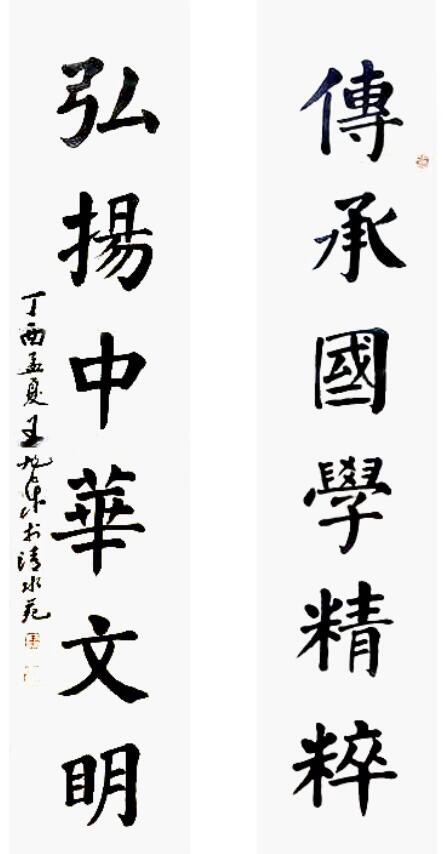 傳承國學精粹
弘揚中華文明
丁酉孟夏王旭東作於清水苑